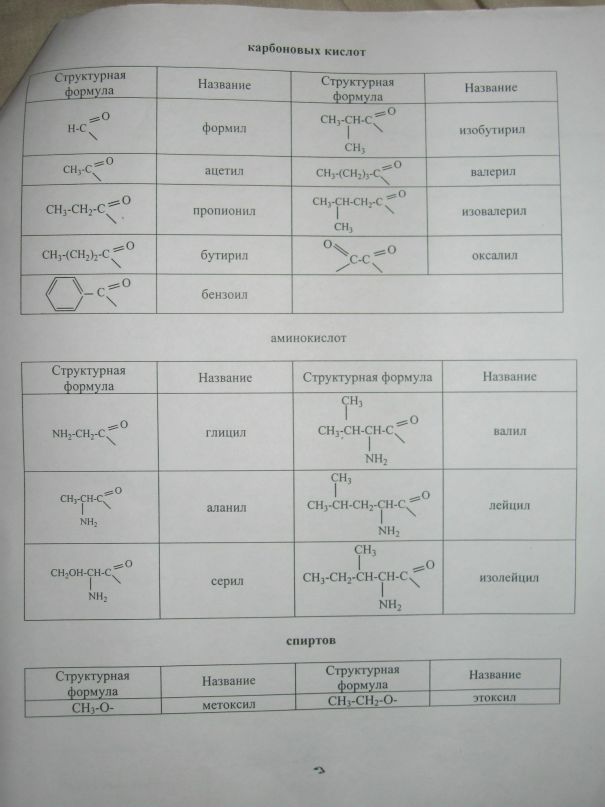 карбоновых кислот
Структурная формула Название Структурная формула Название
H-C=O формил CH₃-CH-C=O изобутирил
CH₃
CH₃-C=O ацетил CH₃-(CH₂)₃-C=O валерил
CH₃-CH₂-C=O пропионил CH₃-CH-CH₂-C=O изовалерил
CH₃
CH₃-(CH₂)₂-C=O бутирил O=C-C=O оксалил
C=O бензоил
аминокислот
Структурная формула Название Структурная формула Название
CH₃
NH₂-CH₂-C=O глицил CH₃-CH-CH-C=O валил
NH₂
CH₃
CH₃-CH-C=O аланил CH₃-CH-CH₂-CH-C=O лейцил
NH₂ NH₂
CH₃
CH₂OH-CH-C=O серил CH₃-CH₂-CH-CH-C=O изолейцил
NH₂ NH₂
спиртов
Структурная формула Название Структурная формула Название
CH₃-O- метоксил CH₃-CH₂-O- этоксил